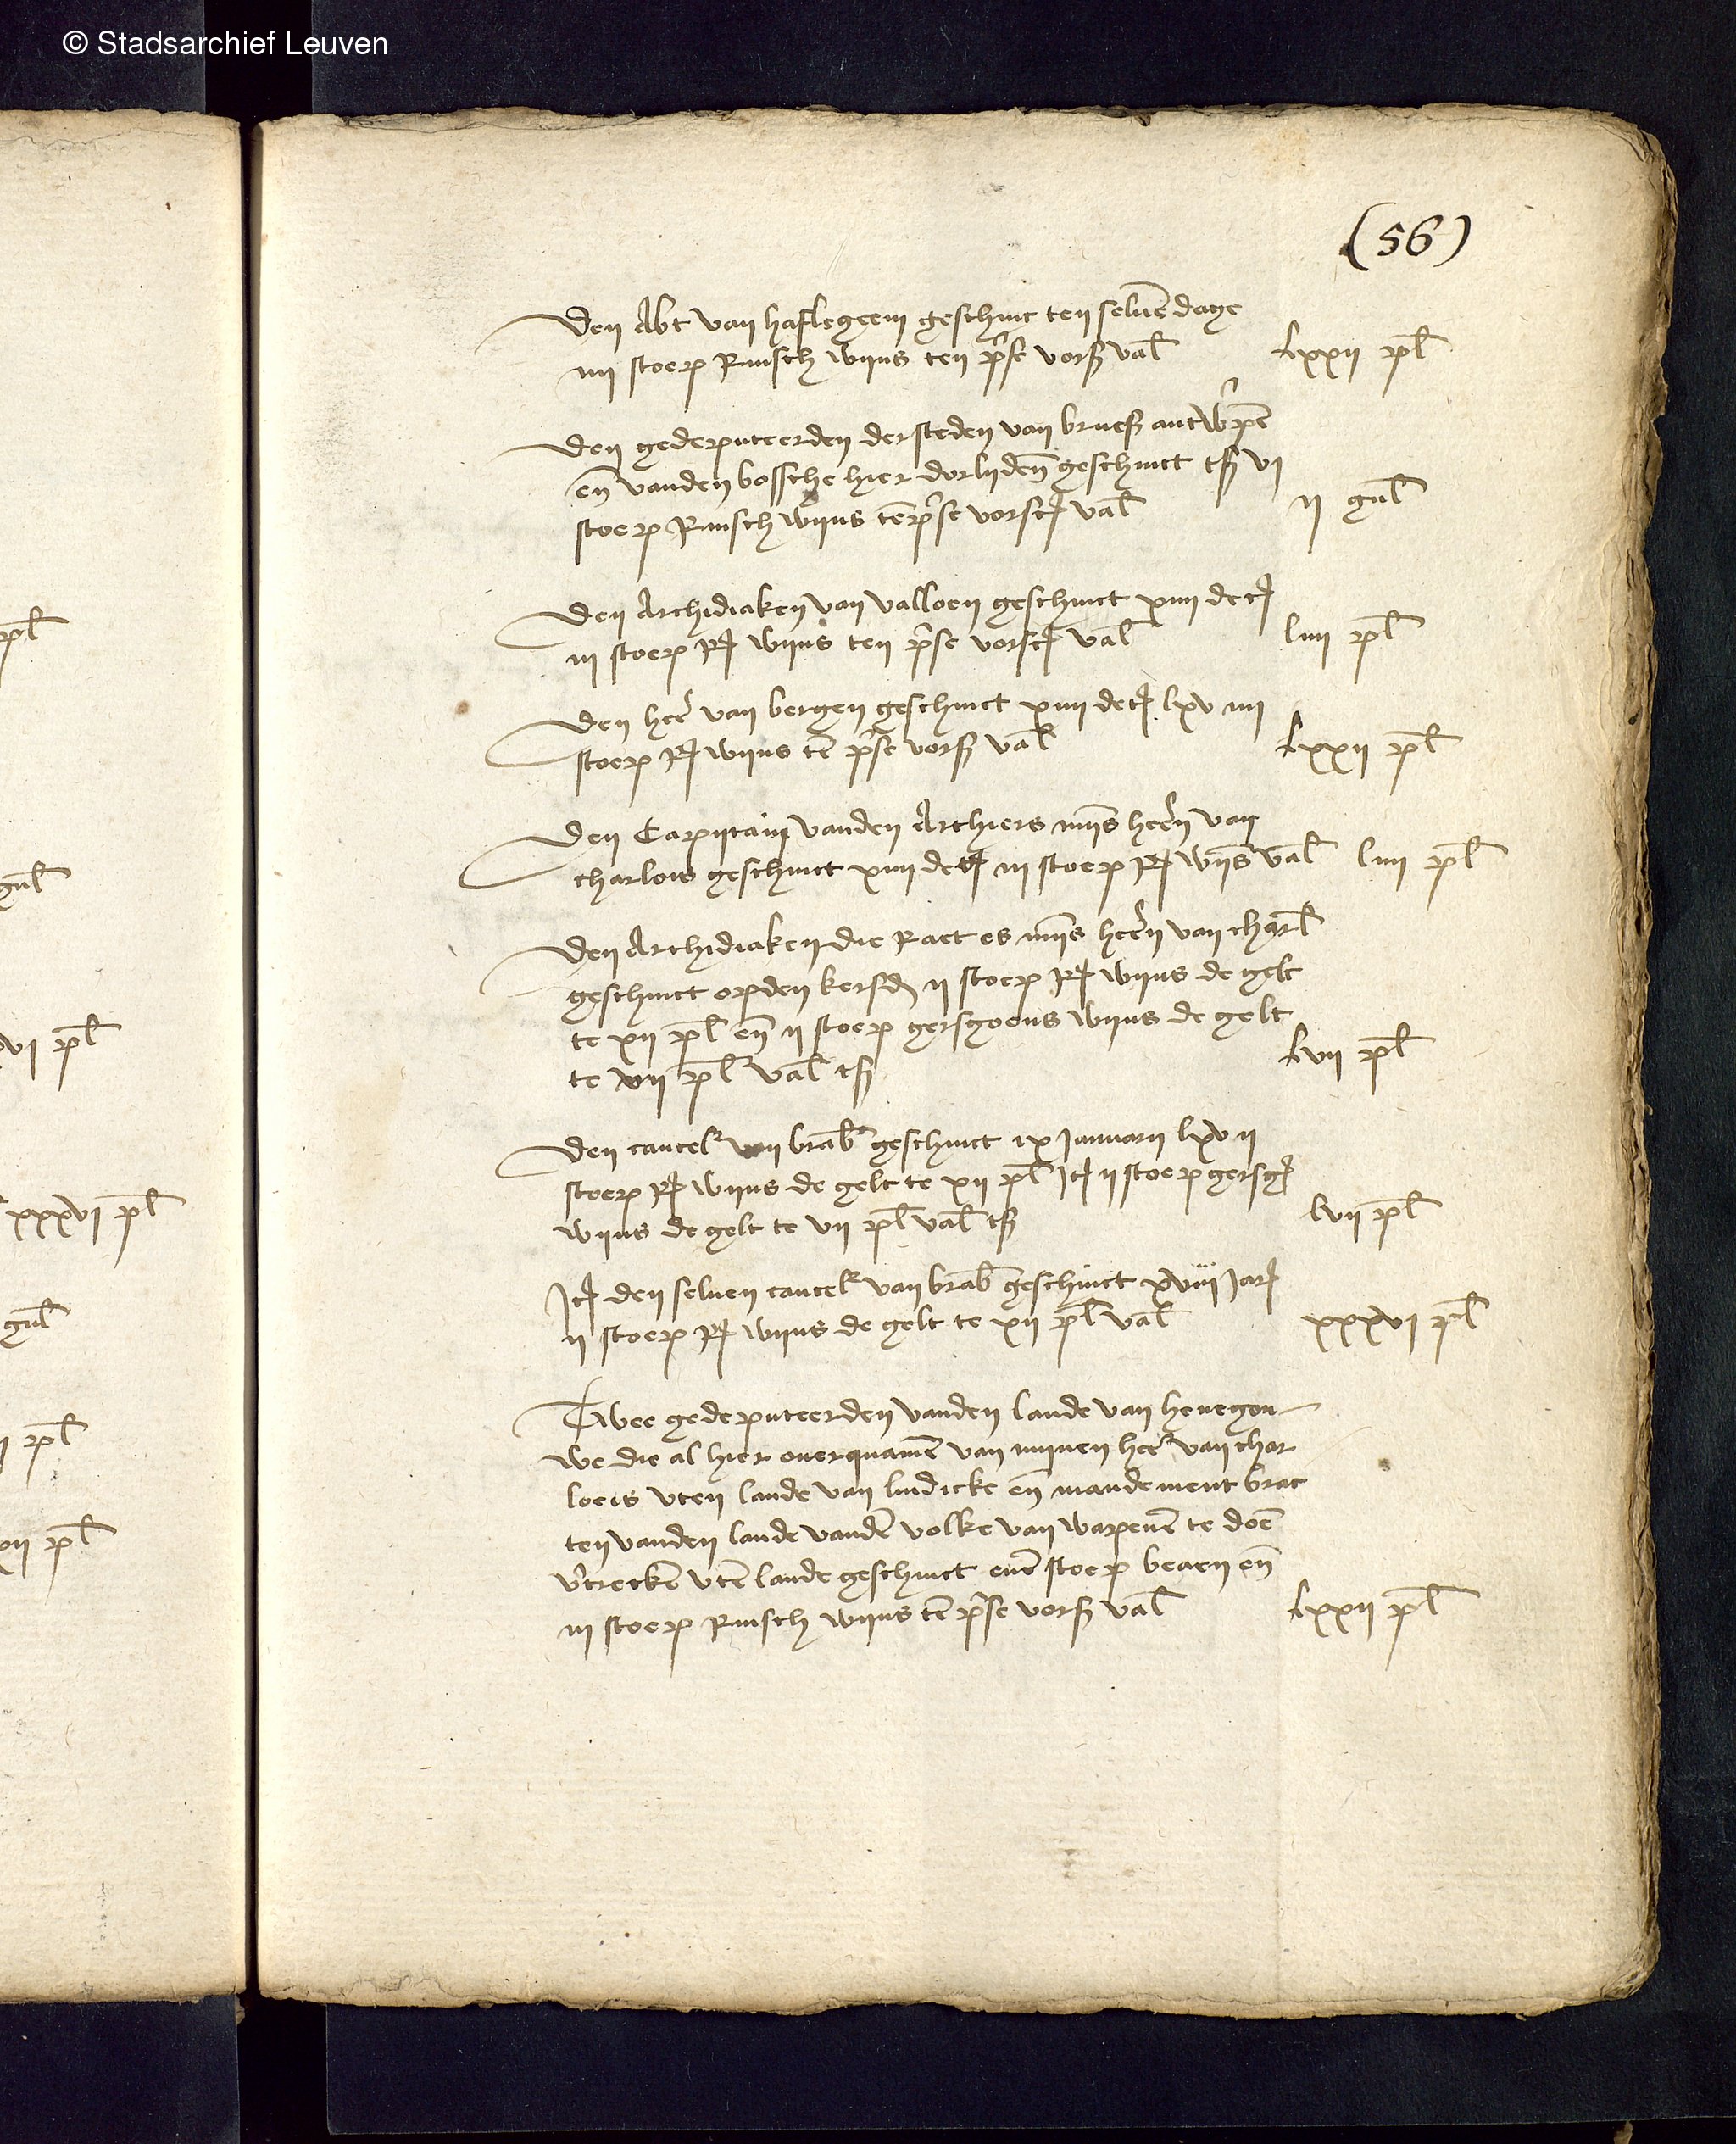 © Stadsarchief Leuven
(56)
Den Abt van haflegeem geschinc ten seluen dage
iiii stoep Rinsch wijns ten prse vors val lxxii pl
Den gedeputeerden der steden van bruess antwerpen
en vanden bossche hier dorlijden geschinct tss vi
stoep Rinsch wijns ten prse vorsc val ii gul
Den Archidiaken van valloen geschinct xiiii dec
iii stoep R wijns ten prse vorsc val liiii pl
Den heer van bergen geschinct xiiii dec lxv iiii
stoep R wijns ten prse vors val lxxii pl
Den Capitain vanden Archiers mijns heren van
charlois geschinct xiiii dec iii stoep R wijns val liiii pl
Den Archidiaken die Raet es mijns heren van charl
geschinct opden kersd ii stoep R wijns de gelt
te xii pl en ii stoep gersgoens wijns de gelt
te vii pl val tss lvii pl
Den cancel van brab geschinct ix Januarii lxv ii
stoep R wijns de gelt te xii pl It ii stoep gersg
wijns de gelt te vii pl val tss lvii pl
It den seluen cancel van brab geschinct xviii Jar
ii stoep R wijns de gelt te xii pl val xxxvi pl
Twee gedeputeerden vanden lande van henegou
we die al hier ouerquamen van mijnen heer van char
loeis vten lande van ludicke en mandement brac
ten vanden lande vanden volke van wapenen te doen
vertrecken vten lande geschinct enen stoep beaen en
iii stoep Rinsch wijns ten prse vors val lxxii pl
pl
gul
vi pl
xxxvi pl
gul
pl
xii pl